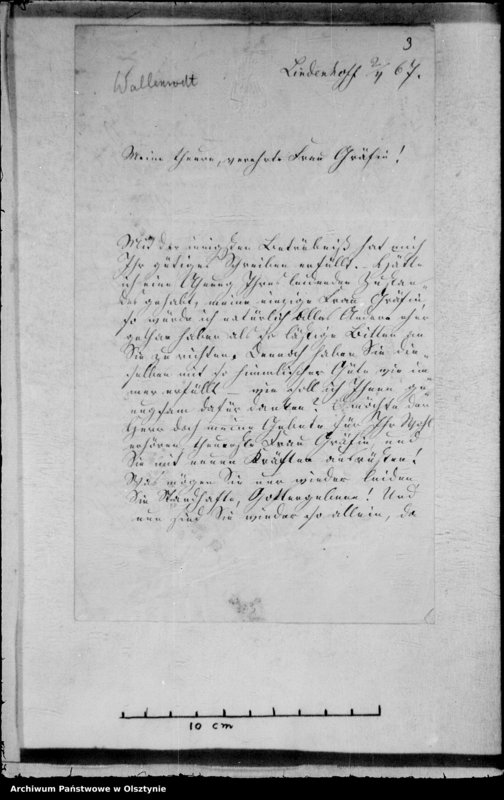 3
Wallenrodt
Lindenhoff 67.
Meine theure, verehrte Frau Gräfin!
Mit der innigsten Betrübniß hat mich
Ihr gütiges Schreiben erfüllt. Hätte
ich eine Ahnung Ihres leidenden Zustan-
des gehabt, meine einzige Frau Gräfin,
so würde ich natürlich alles Andere eher
gethan haben als so lästige Bitten an
Sie zu richten. Dennoch haben Sie die-
selben mit so himmlischer Güte wie im-
mer erfüllt – wie soll ich Ihnen ge-
nugsam dafür danken! O möchte der
Herr doch meine Gebete für Ihr Wohl
erhören theuerste Frau Gräfin und
Sie mit neuen Kräften ausrüsten!
Was mögen Sie nur wieder leiden
Sie Standhafte, Gottergebene! Und
nun sind Sie wieder so allein, da
10 cm
Archiwum Państwowe w Olsztynie